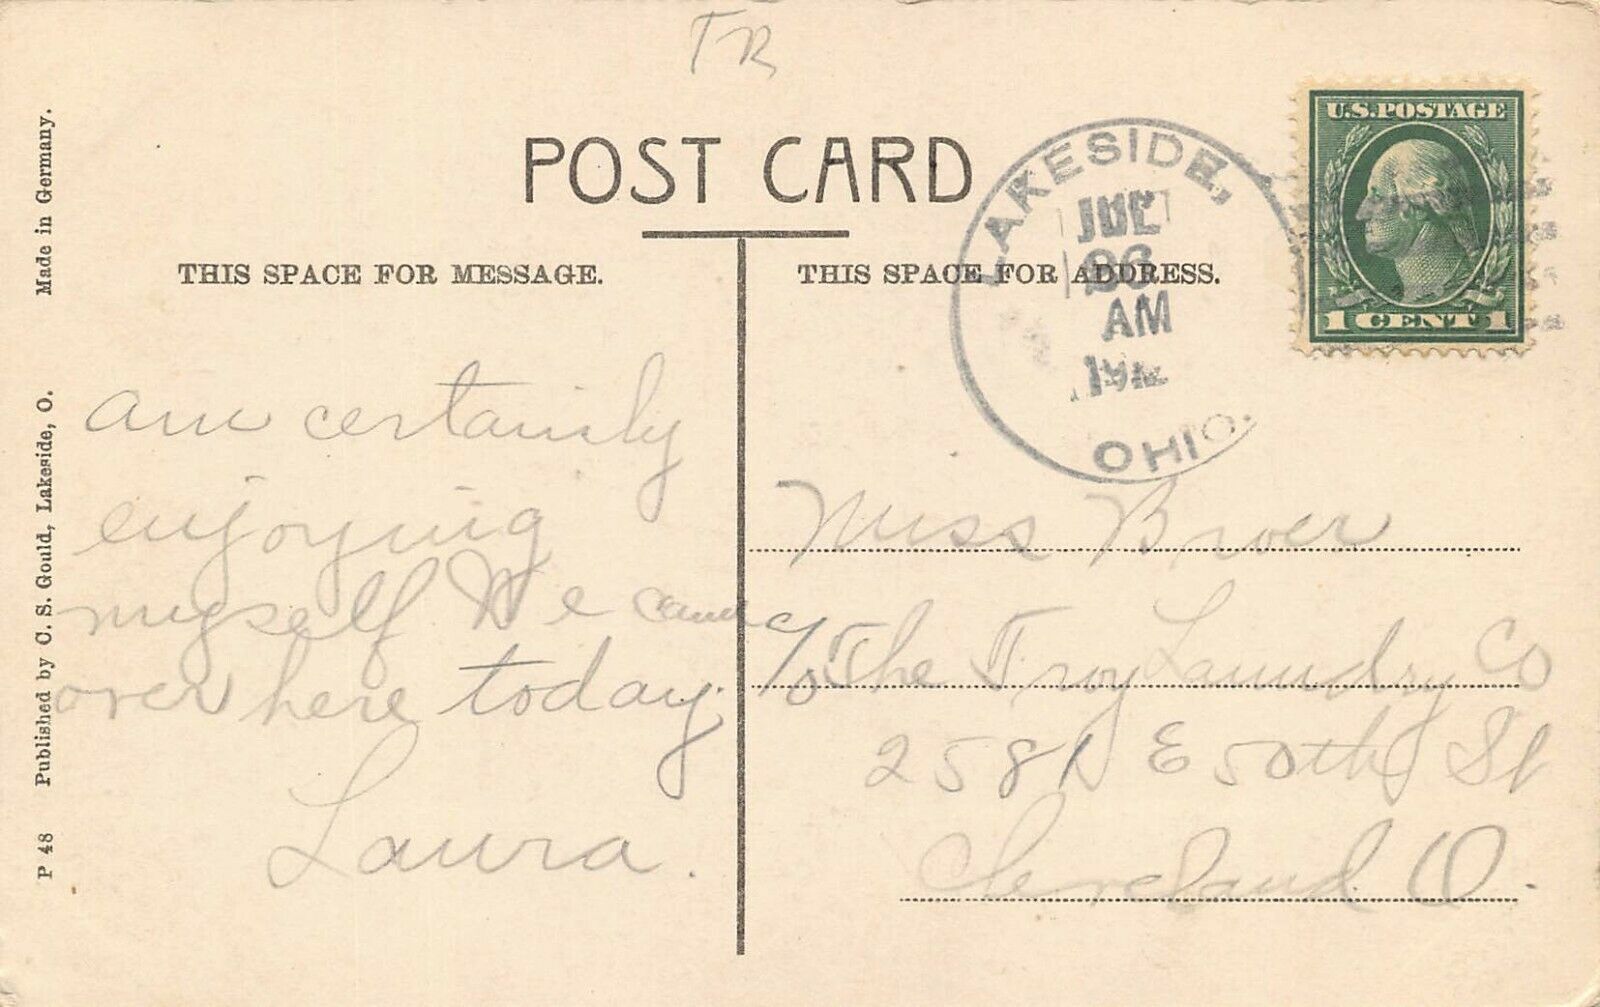 TR
POST CARD
THIS SPACE FOR MESSAGE.
THIS SPACE FOR ADDRESS.
Made in Germany.
Published by C. S. Gould, Lakeside, O.
P 48
LAKESIDE,
JUL
26
AM
OHIO.
U.S. POSTAGE
1 CENT 1
am certainly
enjoying
myself We came
over here today.
Laura.
Miss Broer
c/o The Troy Laundry Co
2581 E 50th St
Cleveland O.